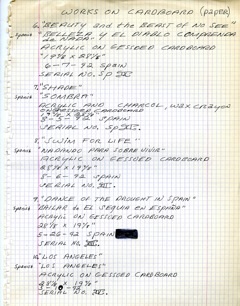 WORKS ON CARDBOARD (paper)
6. "BEAUTY and the BEAST OF NO SEE"
Spanish "BELLEZA y EL DIABLO COMPRENDA
de NADA."
ACRYLIC ON GESSOED CARDBOARD
6-7-92 SPAIN
SERIAL NO. Sp
7. "SHADE"
Spanish "SOMBRA"
ACRYLIC AND CHARCOL, WAX CRAYON
ON GESSOED CARDBOARD
8-3-92 SPAIN
SERIAL NO. SP
8. "SWIM FOR LIFE"
Spanish "NADANDO PARA SOBRE VIVIR"
ACRYLIC ON GESSOED CARDBOARD
8-6-92 SPAIN
SERIAL NO.
9. "DANCE OF THE DROUGHT IN SPAIN"
Spanish BAILAR de EL SEQUIA en ESPAÑA"
ACRYLIC ON GESSOED CARDBOARD
5-26-92 SPAIN
SERIAL NO.
10. "LOS ANGELES"
Spanish "LOS ANGELES"
ACRYLIC ON GESSOED CARDBOARD
SERIAL NO.